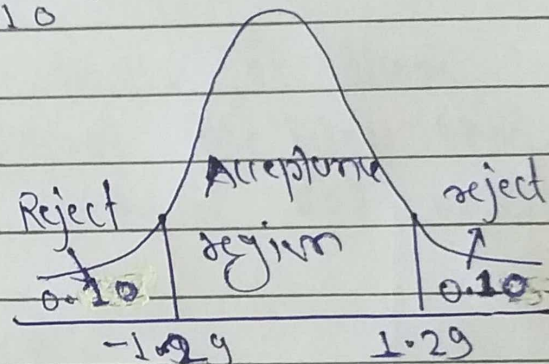 10
Reject Acceptance reject
region
0.10 0.10
-1.29 1.29